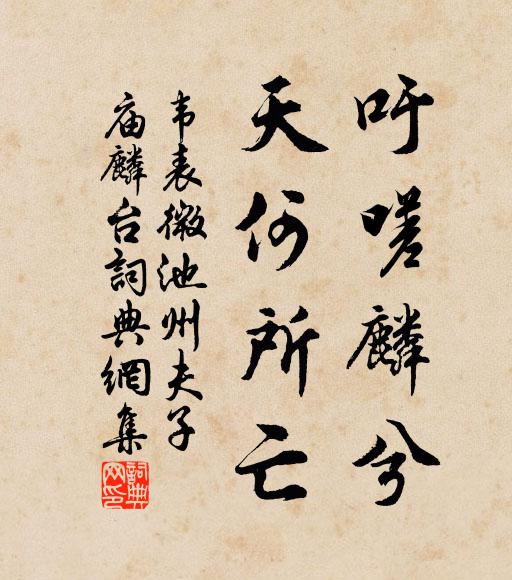 吁嗟麟兮
天何所亡
韦表微池州夫子
庙麟台詞典網集
詞典網印